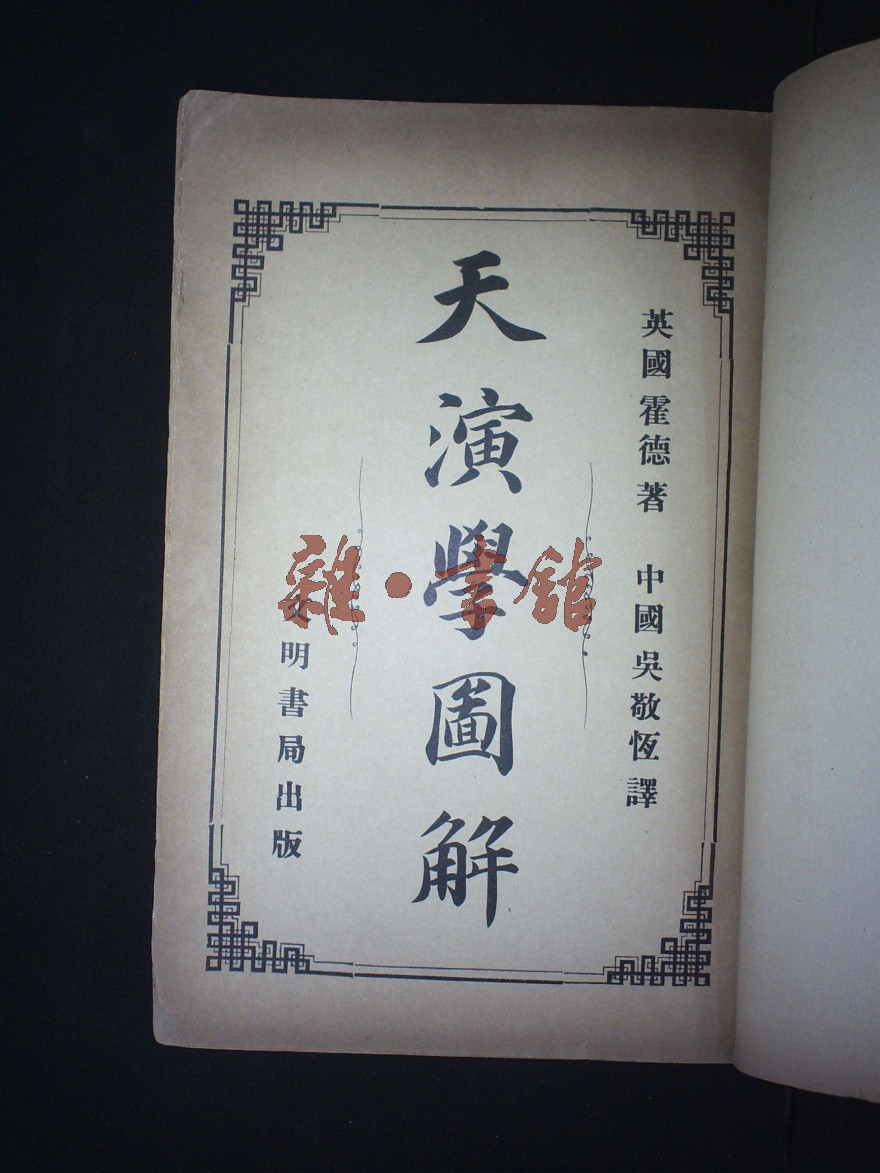 英國霍德著 中國吳敬恆譯
天演學圖解
文明書局出版
雜·書館